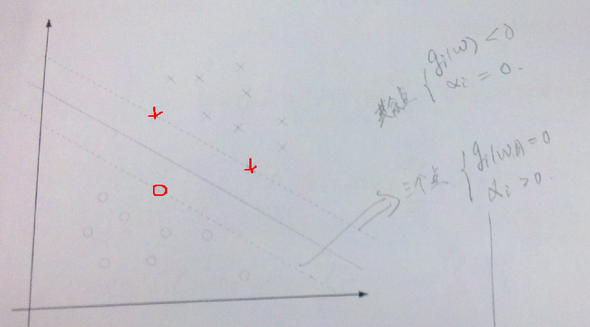 其余点 { gi(w) < 0
αi = 0.
三个点 { gi(w) = 0
αi > 0.